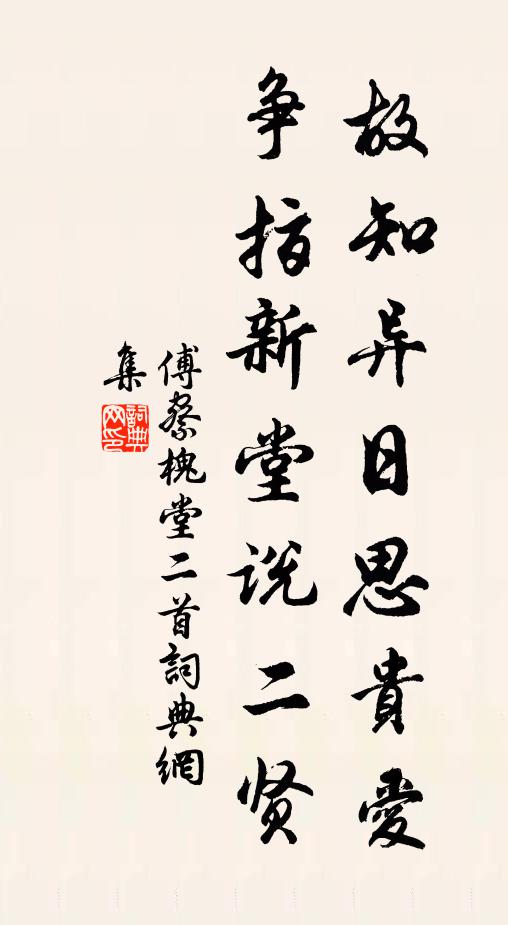 故知异日思貴愛
争指新堂说二贤
傅察槐堂二首詞典網
集
詞典网印